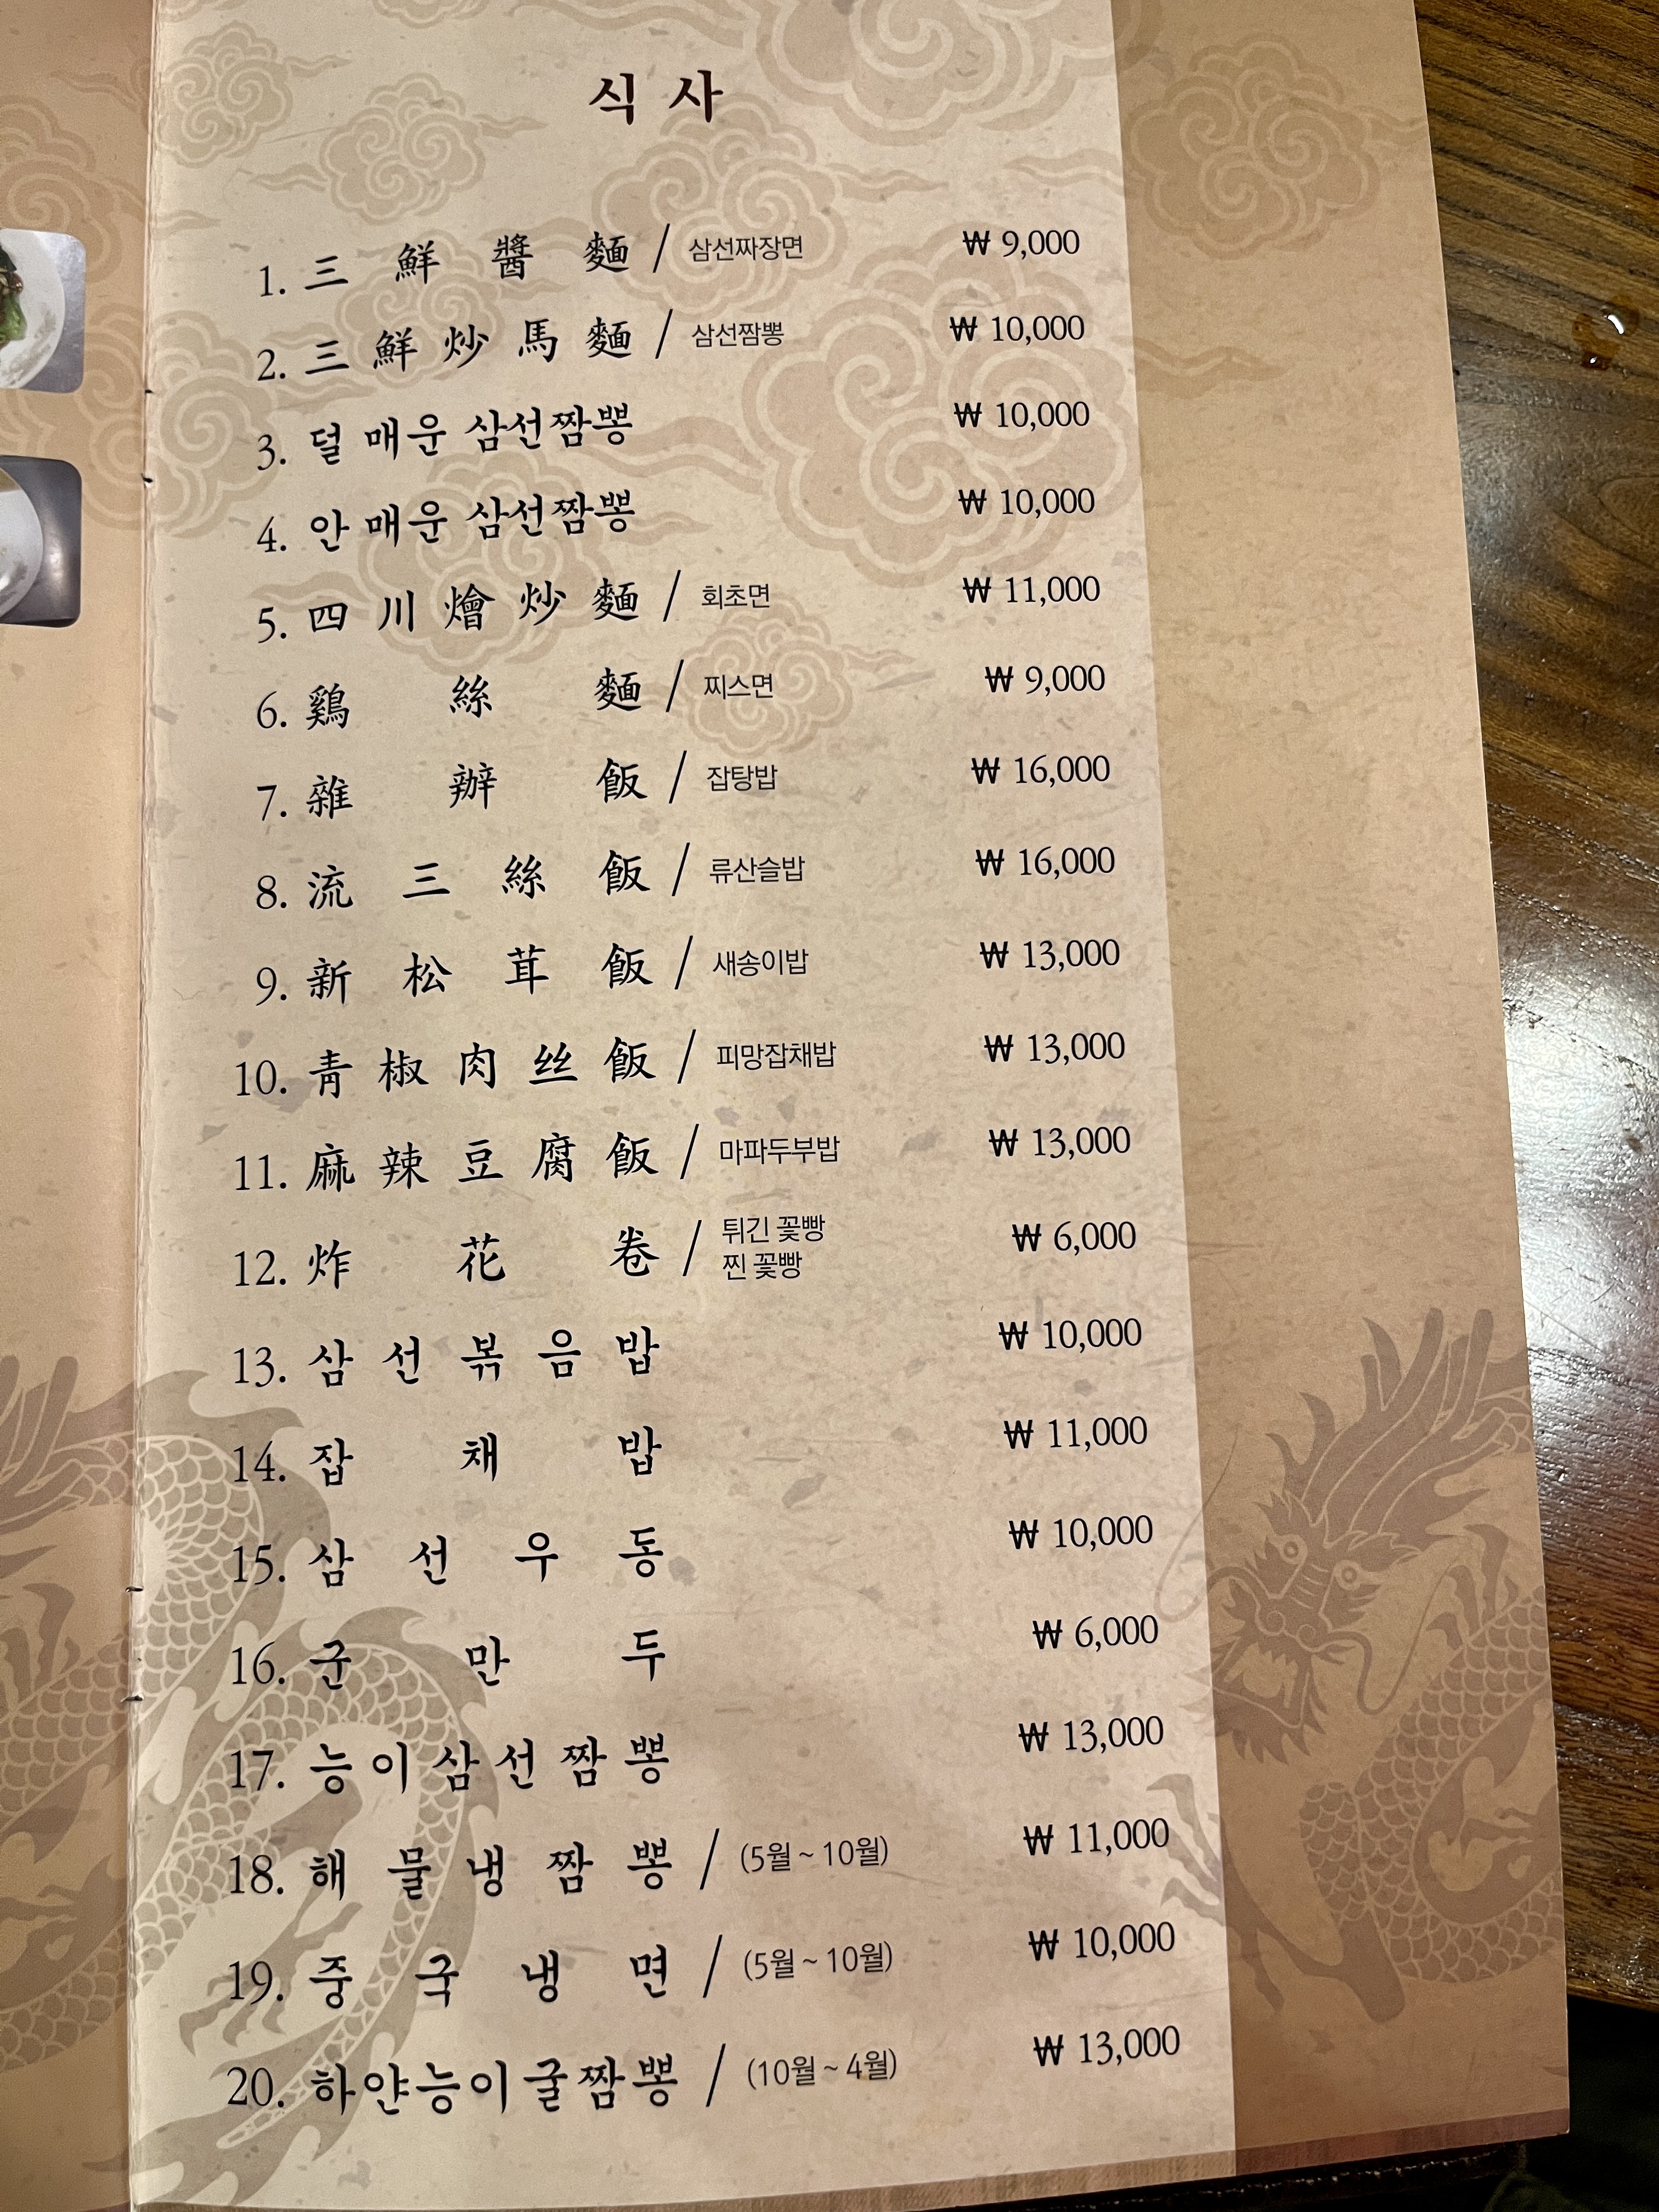 식 사
1. 三 鮮 醬 麵 / 삼선짜장면 ₩ 9,000
2. 三 鮮 炒 馬 麵 / 삼선짬뽕 ₩ 10,000
3. 덜 매운 삼선짬뽕 ₩ 10,000
4. 안 매운 삼선짬뽕 ₩ 10,000
5. 四 川 燴 炒 麵 / 회초면 ₩ 11,000
6. 鷄 絲 麵 / 찌스면 ₩ 9,000
7. 雜 辦 飯 / 잡탕밥 ₩ 16,000
8. 流 三 絲 飯 / 류산슬밥 ₩ 16,000
9. 新 松 茸 飯 / 새송이밥 ₩ 13,000
10. 靑 椒 肉 丝 飯 / 피망잡채밥 ₩ 13,000
11. 麻 辣 豆 腐 飯 / 마파두부밥 ₩ 13,000
12. 炸 花 卷 / 튀긴 꽃빵 ₩ 6,000
찐 꽃빵
13. 삼 선 볶 음 밥 ₩ 10,000
14. 잡 채 밥 ₩ 11,000
15. 삼 선 우 동 ₩ 10,000
16. 군 만 두 ₩ 6,000
17. 능 이 삼 선 짬 뽕 ₩ 13,000
18. 해 물 냉 짬 뽕 / (5월 ~ 10월) ₩ 11,000
19. 중 국 냉 면 / (5월 ~ 10월) ₩ 10,000
20. 하얀능이굴짬뽕 / (10월 ~ 4월) ₩ 13,000